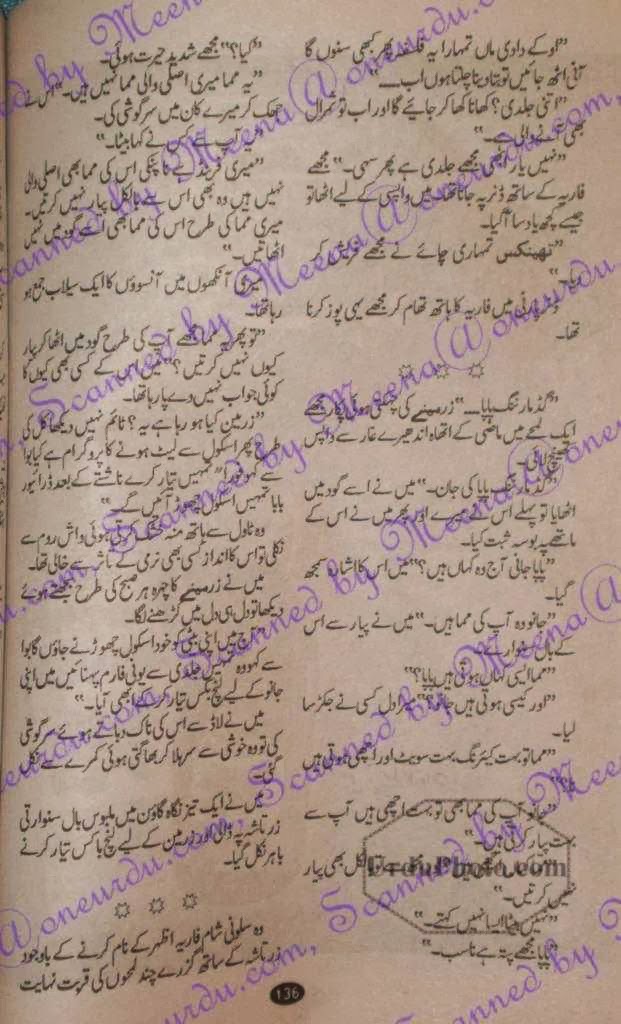 ”اوکے دادی ماں تمہارا یہ فلسفہ پھر کبھی سنوں گا
آنی اٹھ جائیں تو بتا دینا چلتا ہوں اب....“
”اتنی جلدی؟ کھانا کھا کر جائیے گا اور اب تو
بھی آنے والی ہے۔“
”نہیں یار مجھے جلدی ہے پھر سہی۔“ مجھے
فاریہ کے ساتھ ڈنر پہ جانا تھا۔ میں واپسی کے لیے اٹھا تو
جیسے کچھ یاد سا آ گیا۔
”تھینکس تمہاری چائے نے مجھے فریش کر
دیا۔“
ڈنر پارٹی میں فاریہ کا ہاتھ تھام کر مجھے یہی پوز کرنا
تھا۔
”گڈ مارننگ پاپا....“ زرمینے کی چہکتی ہوئی پکار مجھے
ایک لمحے میں ماضی کے اتھاہ اندھیرے غار سے واپس
کھینچ لائی۔
”گڈ مارننگ پاپا کی جان۔“ میں نے اسے گود میں
اٹھایا تو پہلے اس نے میرے اور پھر میں نے اس کے
ماتھے پہ بوسہ ثبت کیا۔
”پاپا جانی آج وہ کہاں ہیں؟“ میں اس کا اشارہ سمجھ
گیا۔
”جانو وہ آپ کی مما ہیں۔“ میں نے پیار سے اس
کے بال سنوارے۔
”مما ایسی کہاں ہوتی ہیں پاپا؟“
”اور کیسی ہوتی ہیں جانو؟“ میرا دل کسی نے جکڑ سا
لیا۔
”مما تو بہت کیئرنگ بہت سویٹ اور اچھی ہوتی ہیں
”جانو آپ کی مما بھی تو بہت اچھی ہیں آپ سے
بہت پیار کرتی ہیں۔“
بالکل بھی پیار
نہیں کرتیں۔“
”نہیں بیٹا ایسا نہیں کہتے۔“
”پاپا مجھے پتہ ہے ناسب۔“
”کیا؟“ مجھے شدید حیرت ہوئی۔
”یہ مما میری اصلی والی مما نہیں ہیں۔“ اس نے
جھک کر میرے کان میں سرگوشی کی۔
”یہ آپ سے کس نے کہا بیٹا۔“
”میری فرینڈ ہے نا پنکی اس کی مما بھی اصلی والی
نہیں ہیں وہ بھی اس سے بالکل پیار نہیں کرتیں۔
میری مما کی طرح اس کی مما بھی اسے گود میں نہیں
اٹھاتیں۔“
میری آنکھوں میں آنسوؤں کا ایک سیلاب جمع ہو
رہا تھا۔
”تو پھر یہ مما مجھے آپ کی طرح گود میں اٹھا کر پیار
کیوں نہیں کرتیں؟“ میں اس کے کسی بھی کیوں کا
کوئی جواب نہیں دے پا رہا تھا۔
”زرمین کیا ہو رہا ہے یہ؟ ٹائم نہیں دیکھا کل کی
طرح پھر اسکول سے لیٹ ہونے کا پروگرام ہے کیا بوا
سے کہو فوراً تمہیں تیار کرے ناشتے کے بعد ڈرائیور
بابا تمہیں اسکول چھوڑ آئیں گے۔“
وہ ٹاول سے ہاتھ منہ خشک کرتی ہوئی واش روم سے
نکلی تو اس کا انداز کسی بھی نرمی کے تاثر سے خالی تھا۔
میں نے زرمینے کا چہرہ ہر صبح کی طرح بجھتے ہوئے
دیکھا تو دل ہی دل میں کڑھنے لگا۔
”آج میں اپنی بیٹی کو خود اسکول چھوڑنے جاؤں گا بوا
سے کہو وہ تمہیں جلدی سے یونی فارم پہنائیں میں اپنی
جانو کے لیے لنچ بکس تیار کر کے ابھی آیا۔“
میں نے لاڈ سے اس کی ناک دباتے ہوئے سرگوشی
کی تو وہ خوشی سے سر ہلا کر بھاگتی ہوئی کمرے سے نکل
گئی۔
میں نے ایک تیز نگاہ گاؤن میں ملبوس بال سنوارتی
زرتاشہ پہ ڈالی اور زرمین کے لیے لنچ باکس تیار کرنے
باہر نکل گیا۔
وہ سلونی شام فاریہ اظہر کے نام کرنے کے باوجود
زرتاشہ کے ساتھ گزرے چند لمحوں کی قربت نہایت
136
UrduPhoto.com
Scanned by Meena@oneurdu.com,